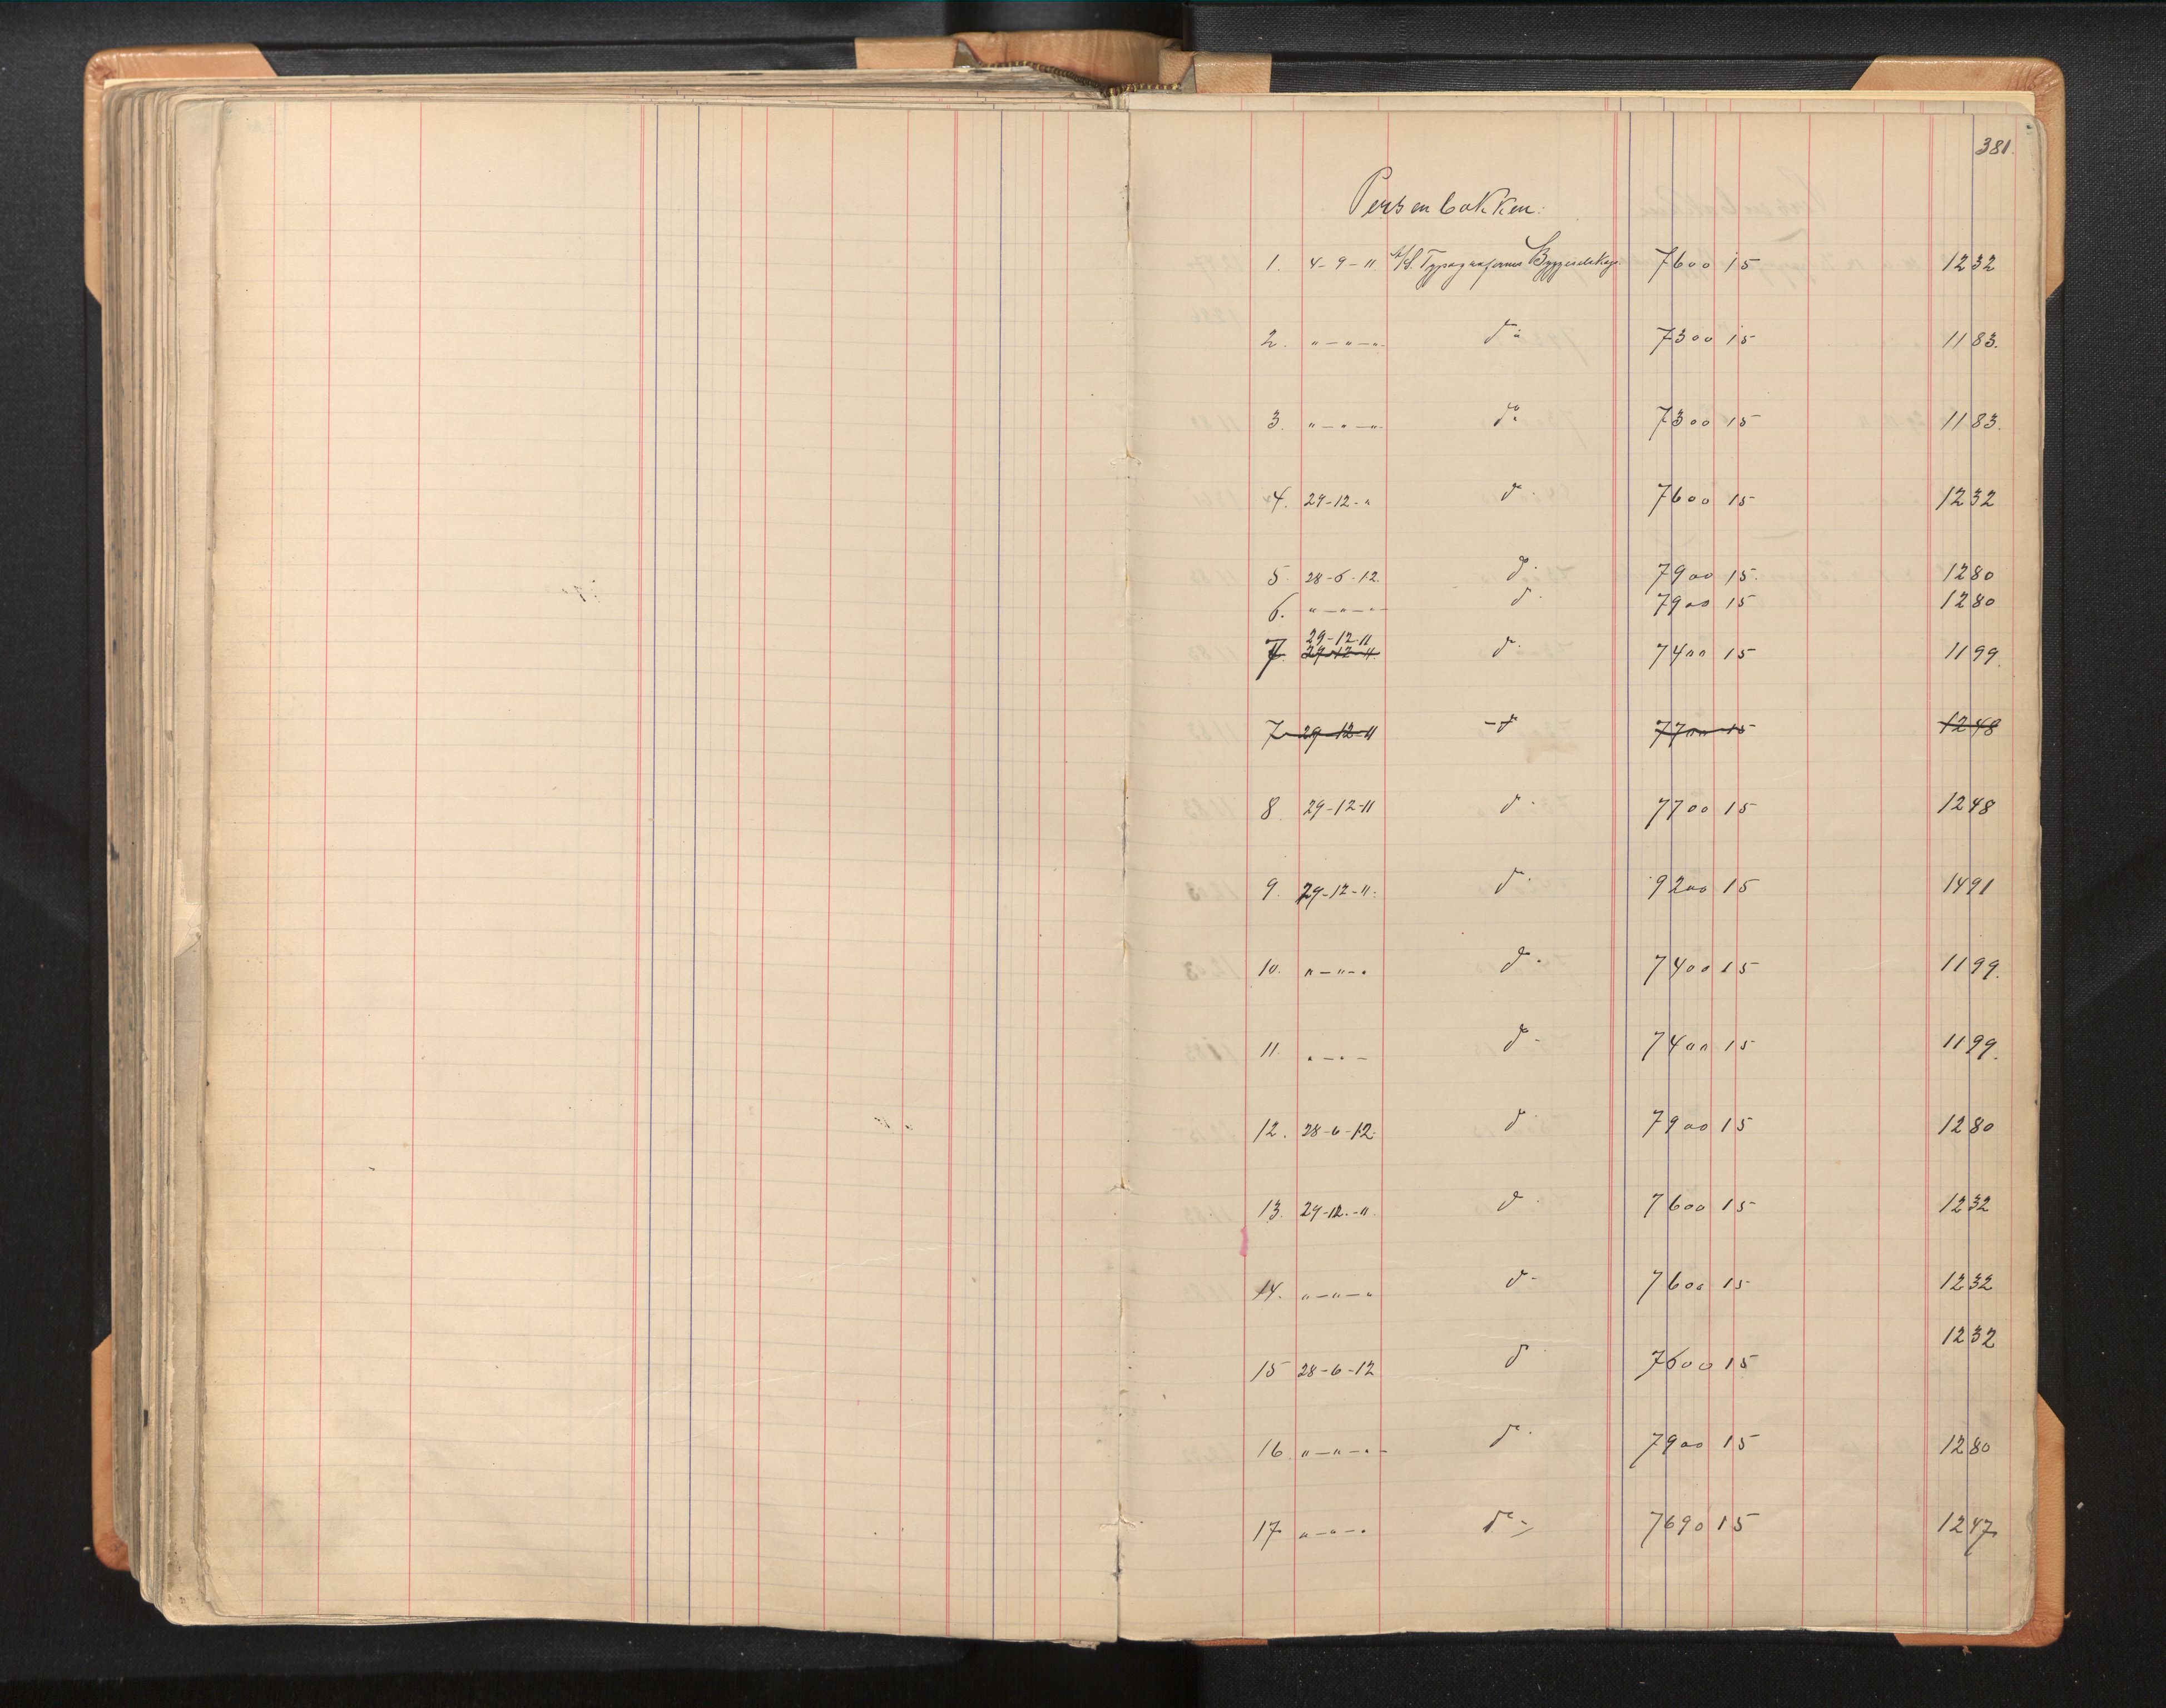 381.
Persenbakken:
1. 4-9-11. A/S. Typografernes Byggeselskap. 7600 15 1232
2. "-"-". do 7300 15 1183.
3. "-"-". do 7300 15 1183.
4. 29-12-" do 7600 15 1232
5 28-6-12. do 7900 15. 1280
6. "-"-"- do 7900 15 1280
29-12-11
7. 29-12-11. do 7400 15 1199.
7 29-12-11 -do 7700 15 1248
8. 29-12-11 do 7700 15 1248
9. 29-12-11. do 9200 15 1491
10. "-"-" do 7400 15 1199.
11. "-"- do 7400 15 1199.
12. 28-6-12. do 7900 15 1280
13. 29-12.-11. do 7600 15 1232
14. "-"-" do 7600 15 1232
15 28-6-12 do 7600 15 1232
16. "-"-"- do 7900 15 1280
17 "-"-" do 7690 15 1247